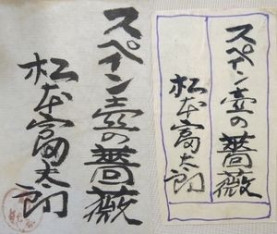 スペイン壺の薔薇
松本富太郎
スペイン壺の薔薇
松本富太郎